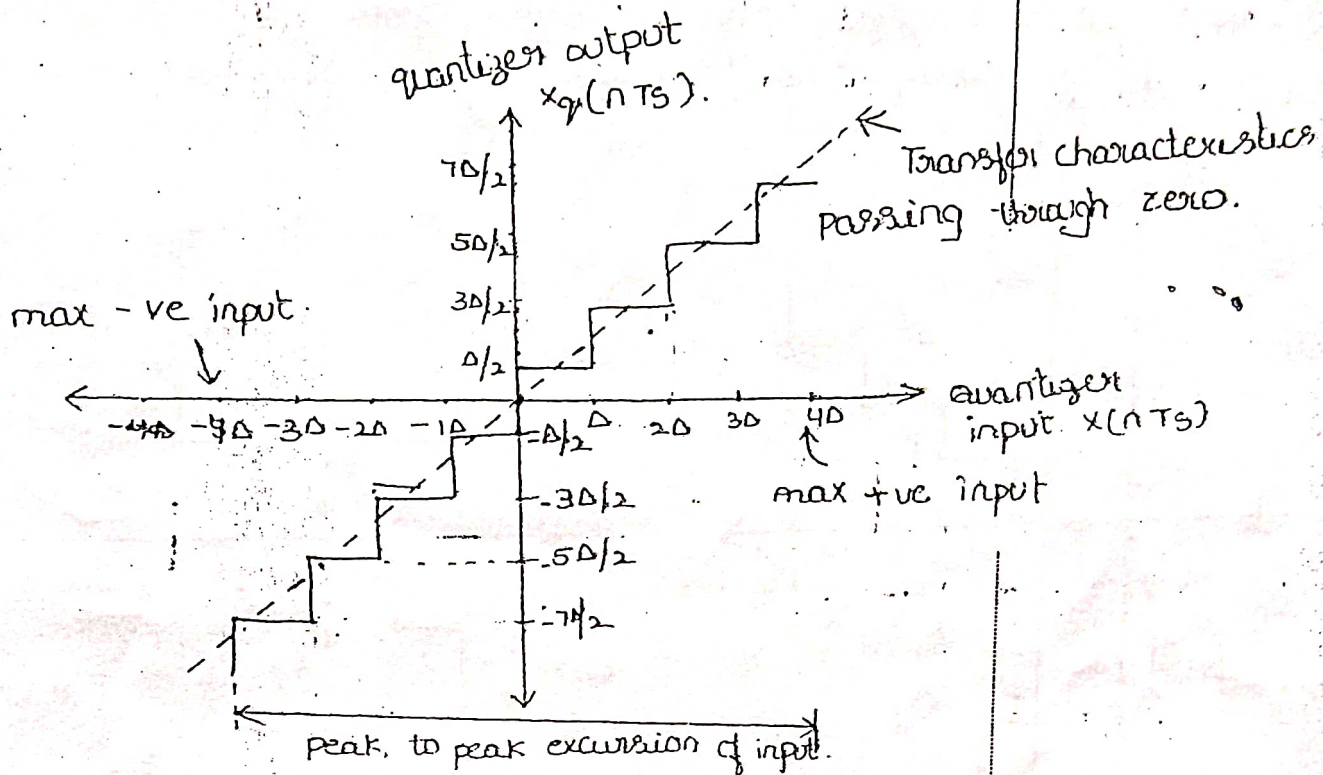 quantizer output
xq(nTs).
7Δ/2
Transfer characteristics
passing through zero.
5Δ/2
3Δ/2
max -ve input.
Δ/2
-4Δ -3Δ -2Δ -1Δ
Δ. 2Δ 3Δ 4Δ
quantizer
input. x(nTs)
-Δ/2
max +ve input
-3Δ/2
-5Δ/2
-7Δ/2
peak, to peak excursion of input.